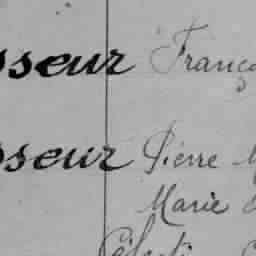 sseur Franç
sseur Pierre M
Marie
Célesti